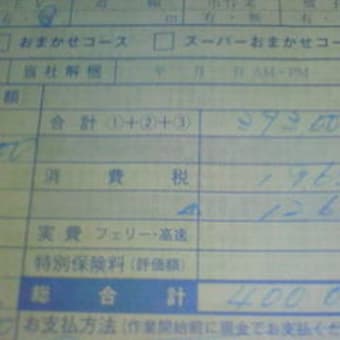 有・無
m
有・無
□ おまかせコース □ スーパーおまかせコー
当社解梱 年 月 日 AM・PM
額
合計 ①+②+③ 39300
消費税 196
▲ 126
実費 フェリー・高速
特別保険料(評価額)
総合計 4000
お支払方法(作業開始前に現金でお支払くだ